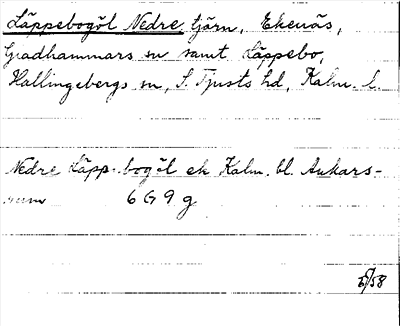 Läppebogöl Nedre tjärn, Ekenäs,
Gladhammars sn samt Läppebo,
Hallingebergs sn, S. Tjusts hd, Kalm. l.
Nedre Läpp.bogöl ek Kalm. bl. Ankars-
rum 6 G 9 g
/58